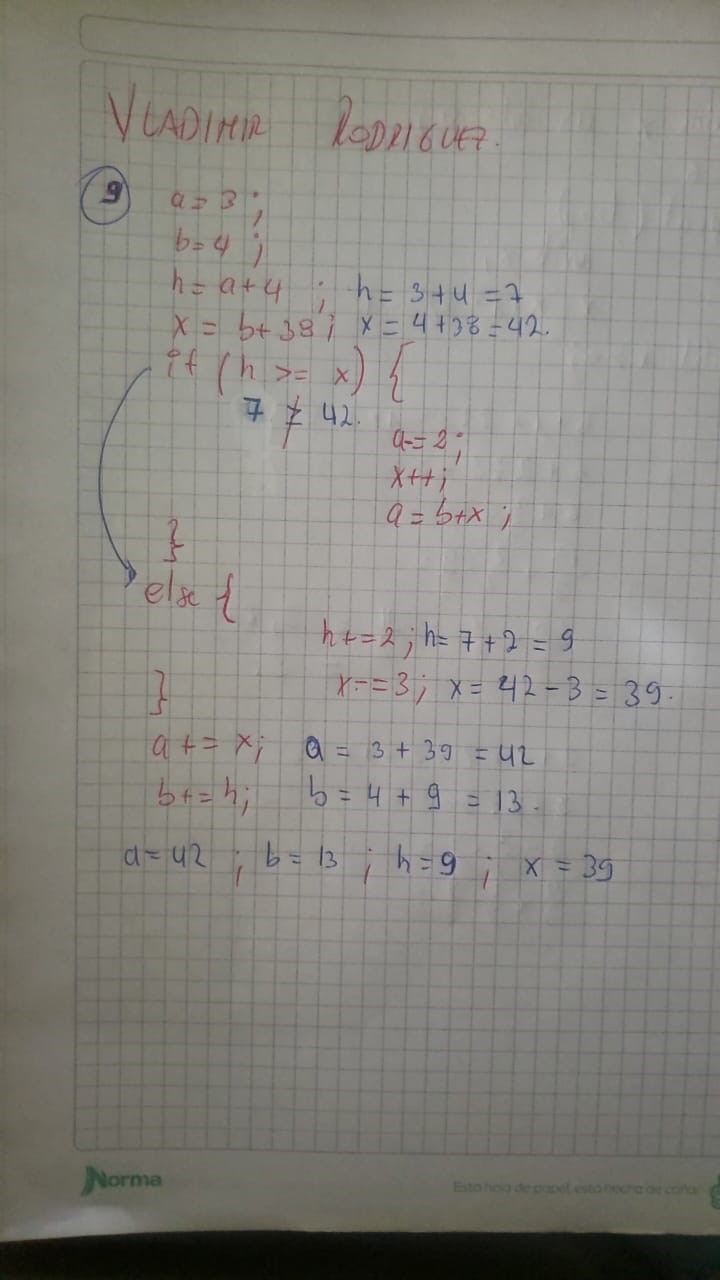 VLADIMIR RODRIGUEZ.
9 a=3;
b=4;
h=a+4; h=3+4=7
x=b+38; x=4+38=42.
if (h >= x) {
7 ≱ 42.
a-=2;
x++;
a=b+x;
}
else {
h+=2; h=7+2=9
x-=3; x=42-3=39.
}
a+=x; a=3+39=42
b+=h; b=4+9=13.
a=42; b=13; h=9; x=39
Norma
Esta hoja de papel, esta hecha de caña